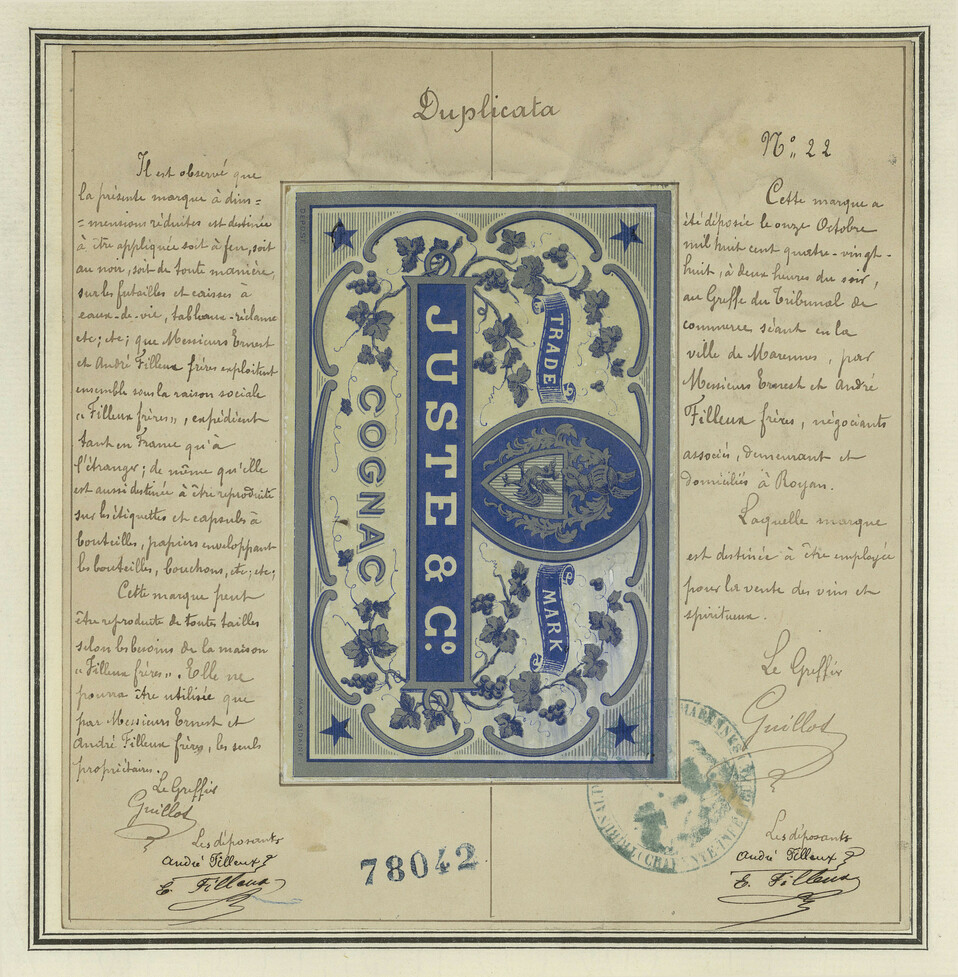 Duplicata
N° 22
Il est observé que
la présente marque à dim=
=mension réduites est destinée
à être appliquée soit à feu, soit
au non, soit de toute manière,
sur les futailles et caisses à
eaux-de-vie, tableaux-réclame
etc; etc; que Messieurs Ernest
et André Filleux frères exploitent
ensemble sous la raison sociale
"Filleux frères", expédient
tant en France qu'à
l'étranger; de même qu'elle
est aussi destinée à être reproduite
sur les étiquettes et capsules à
bouteilles, papiers enveloppant
les bouteilles, bouchons, etc; etc;
Cette marque peut
être reproduite de toutes tailles
selon les besoins de la maison
"Filleux frères". Elle ne
pourra être utilisée que
par Messieurs Ernest et
André Filleux frères, les seuls
propriétaires.
Le Greffier
Guillot
Les déposants
André Filleux
E. Filleux
DÉPOSÉ
TRADE
JUSTE & Co.
COGNAC
MARK
78042
Cette marque a
été déposée le onze Octobre
mil huit cent quatre-vingt-
huit, à deux heures du soir,
au Greffe du Tribunal de
commerce séant en la
ville de Marennes, par
Messieurs Ernest et André
Filleux frères, négociants
associés, demeurant et
domiciliés à Royan.
Laquelle marque
est destinée à être employée
pour la vente des vins et
spiritueux.
Le Greffier
Guillot
Les déposants
André Filleux
E. Filleux